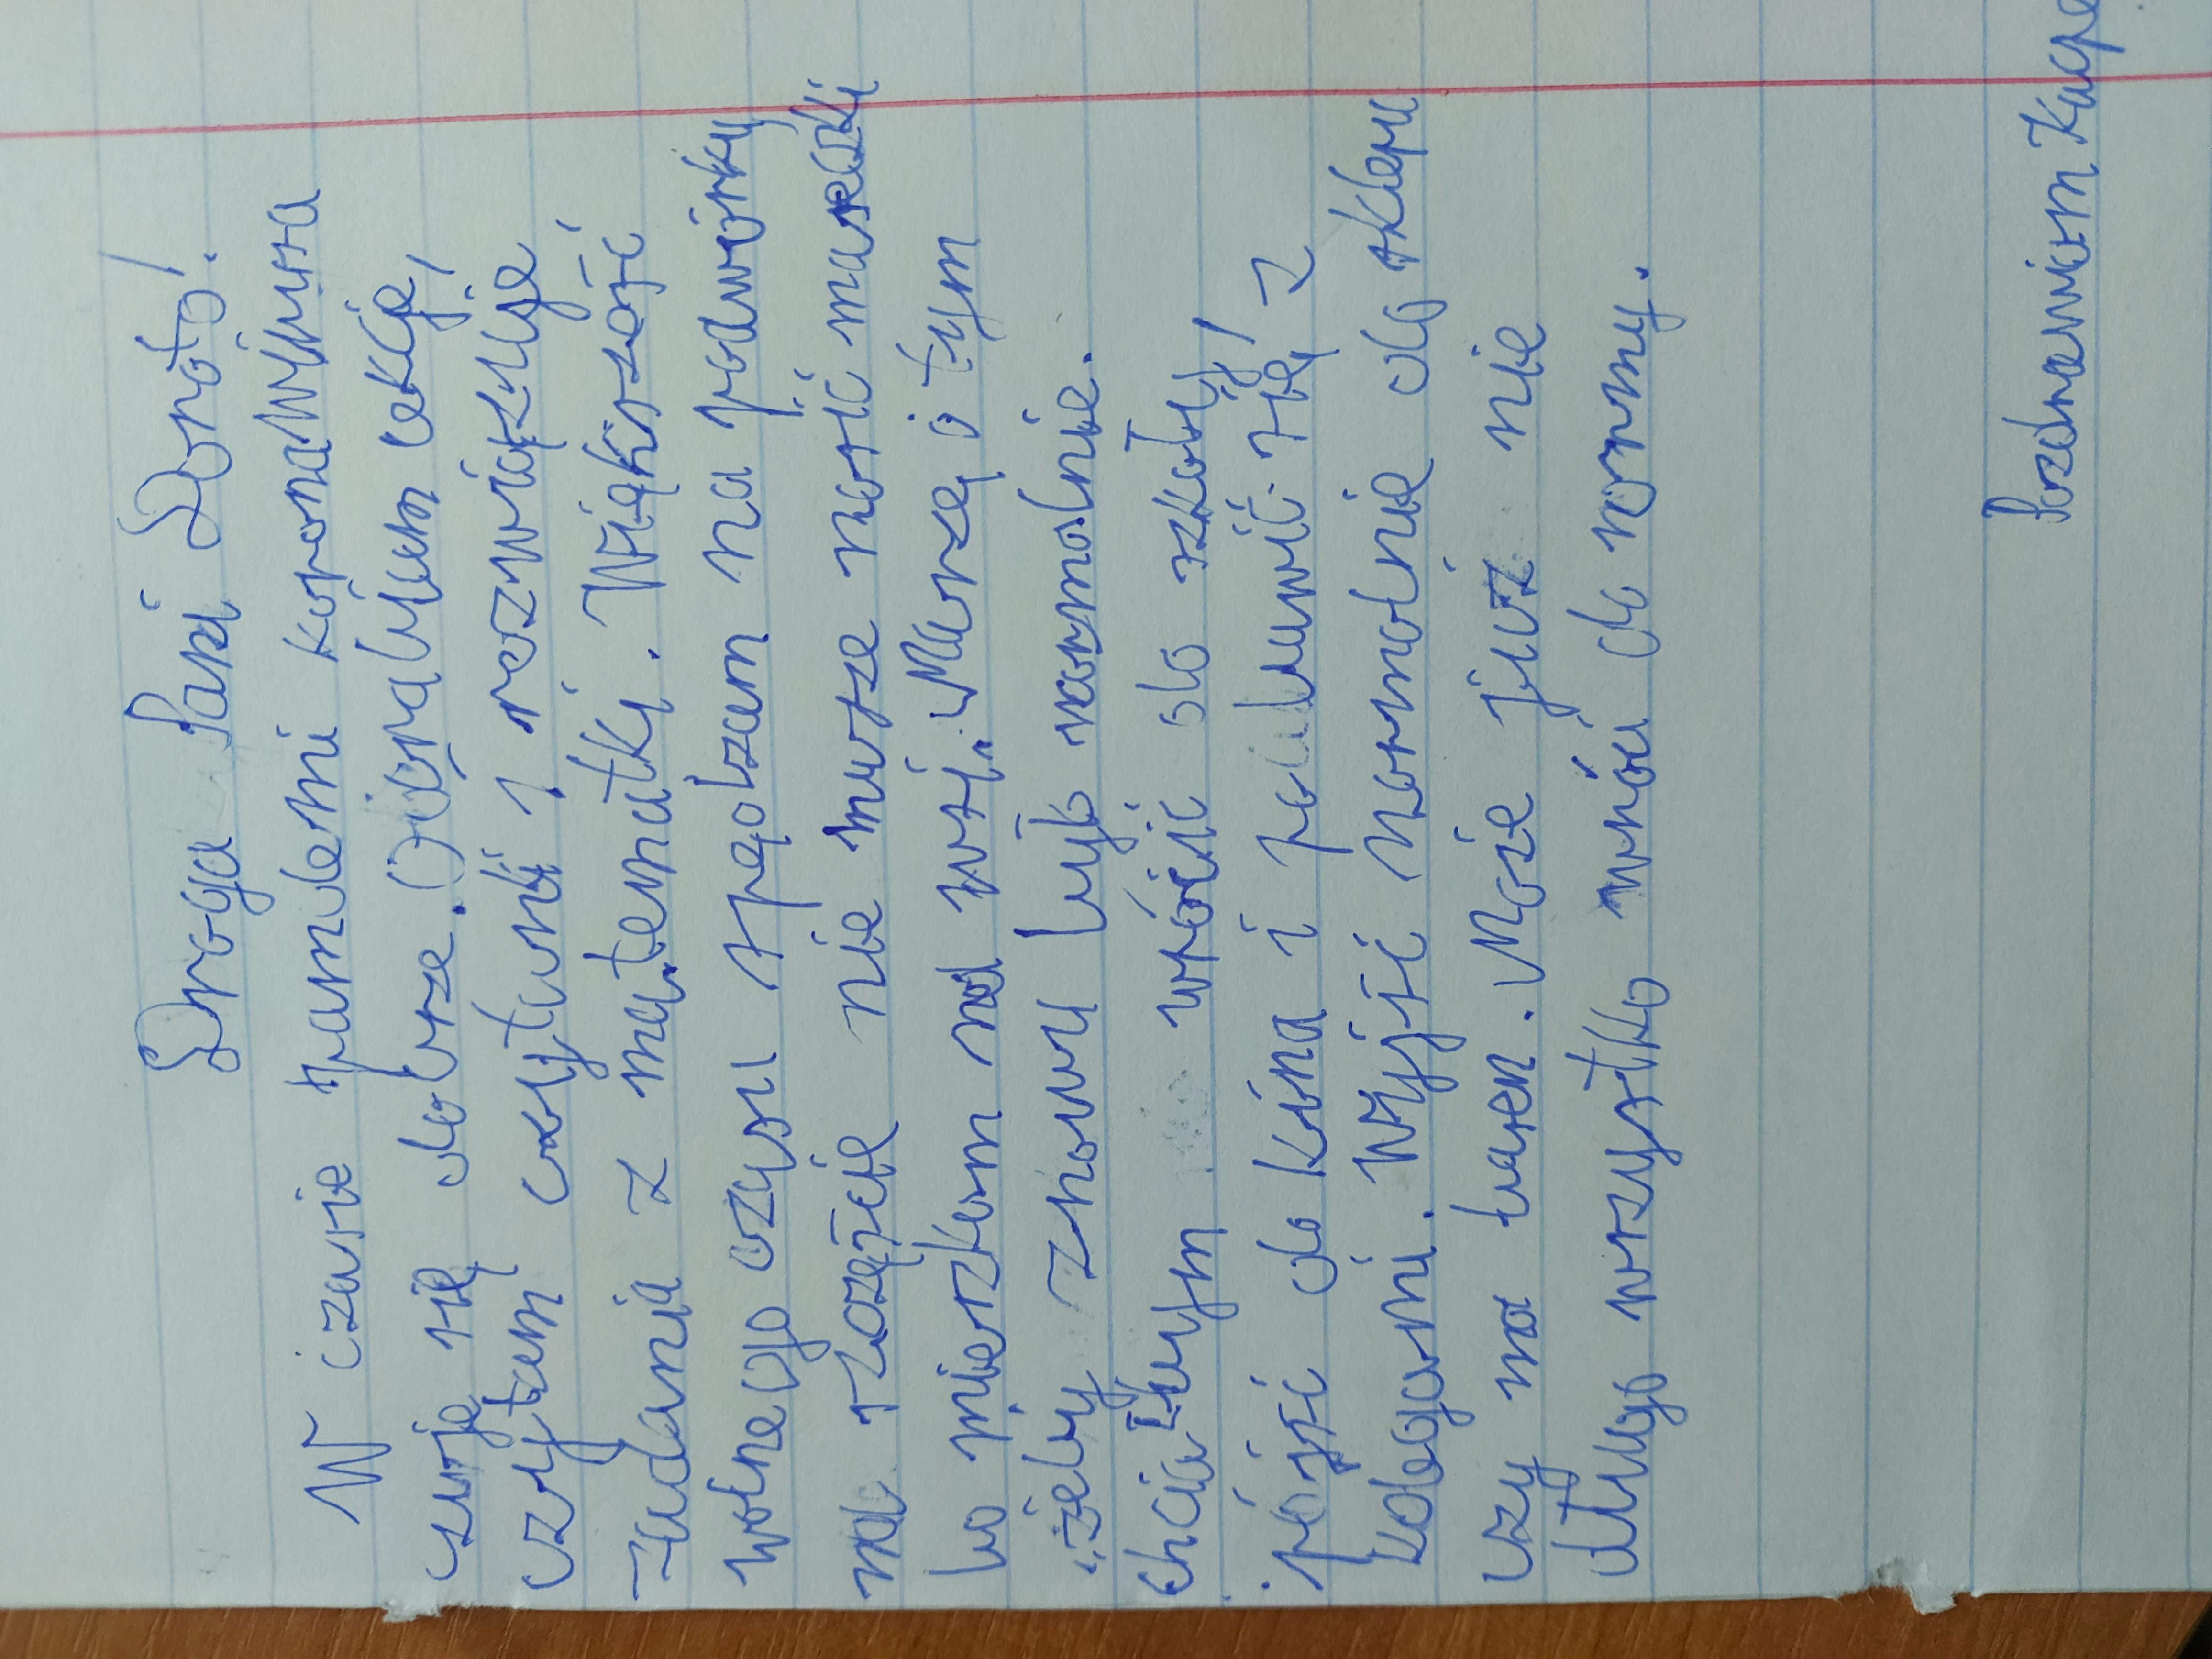 Droga Pani Doroto!
W czasie pandemi koronawirusa
czuje się dobrze. Odrabiam lekcje,
czytam czytanki i rozwiązuje
zadania z matematki. Większość
wolnego czasu spędzam na podwórku
na szczęście nie musze nosić maseczki
bo mieszkam na wsi. Marzę o tym
żeby znowu było normalnie.
chciałbym wrócić do szkoły,
pójść do kina i pobawić się z
kolegami. Wyjść normalnie do sklepu
czy na basen. Może już nie
długo wszystko wróci do normy.
Pozdrawiam